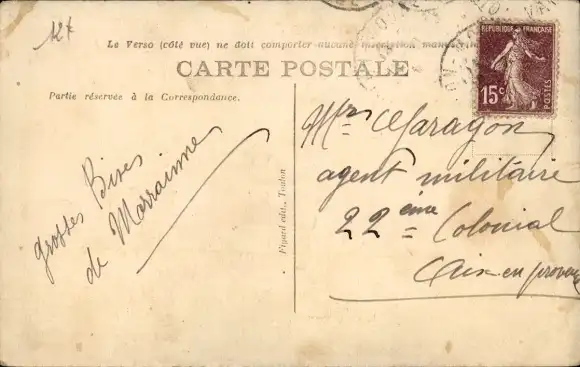 12f
Le Verso (côté vue) ne doit comporter aucune inscription
CARTE POSTALE
Partie réservée à la Correspondance.
REPUBLIQUE FRANÇAISE
15c
POSTES
grosses Bises
de Marrainne
Figard édit., Toulon
Mrs Maragon
agent militaire
22 ème Colonial
Aix en proven